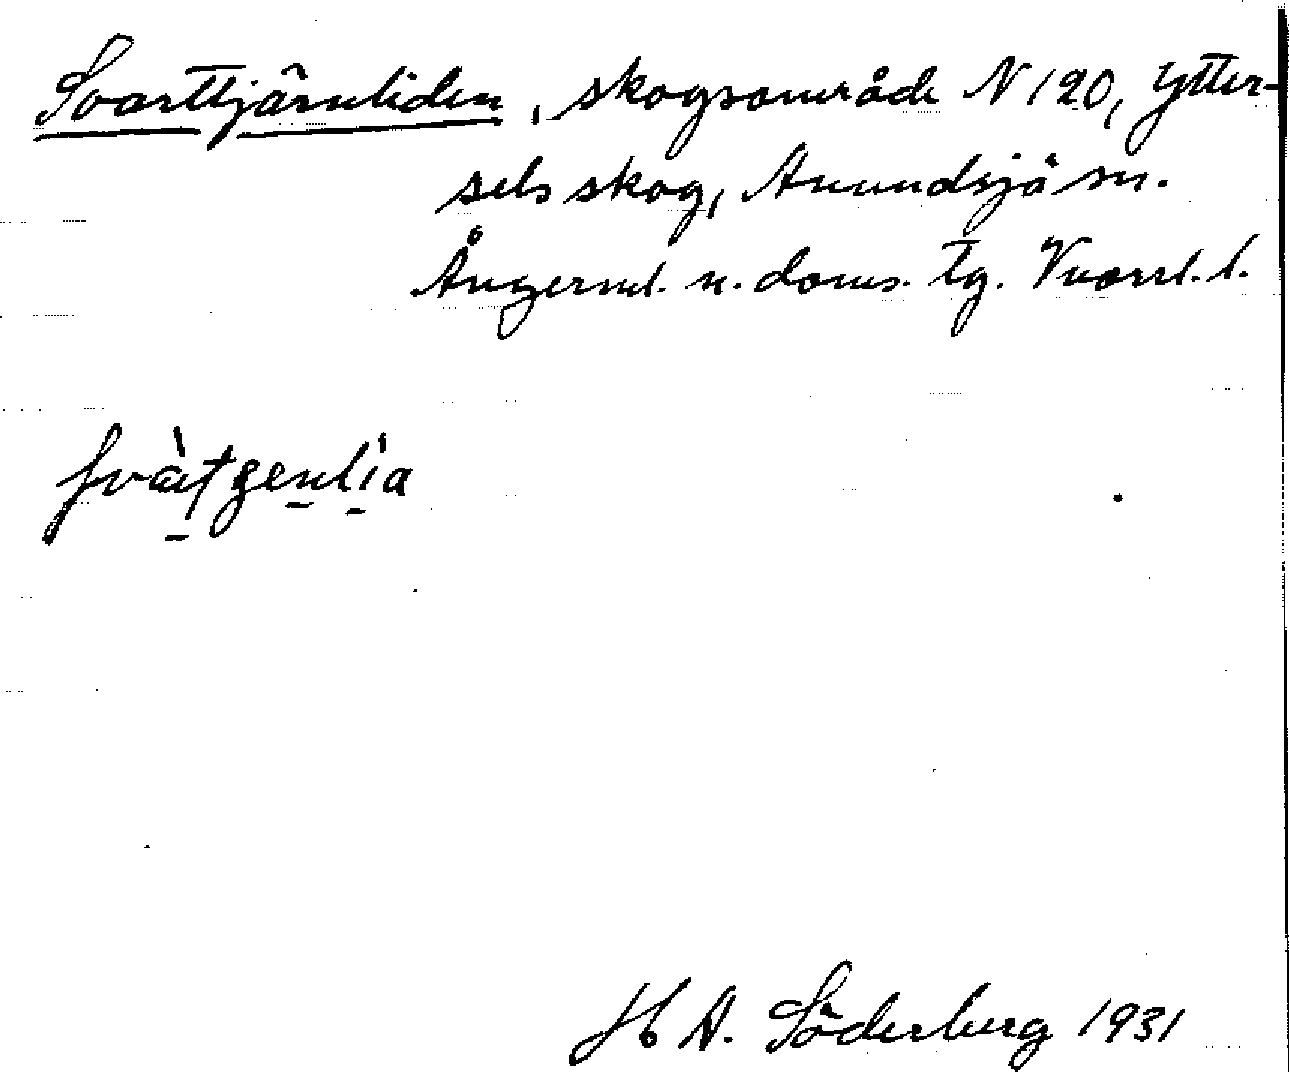 Svarttjärnliden, skogsområde N 120, Ytter-
sels skog, Anundsjö sn.
Ångerml. n. doms. tg. Västrl. l.
H A. Söderberg 1931